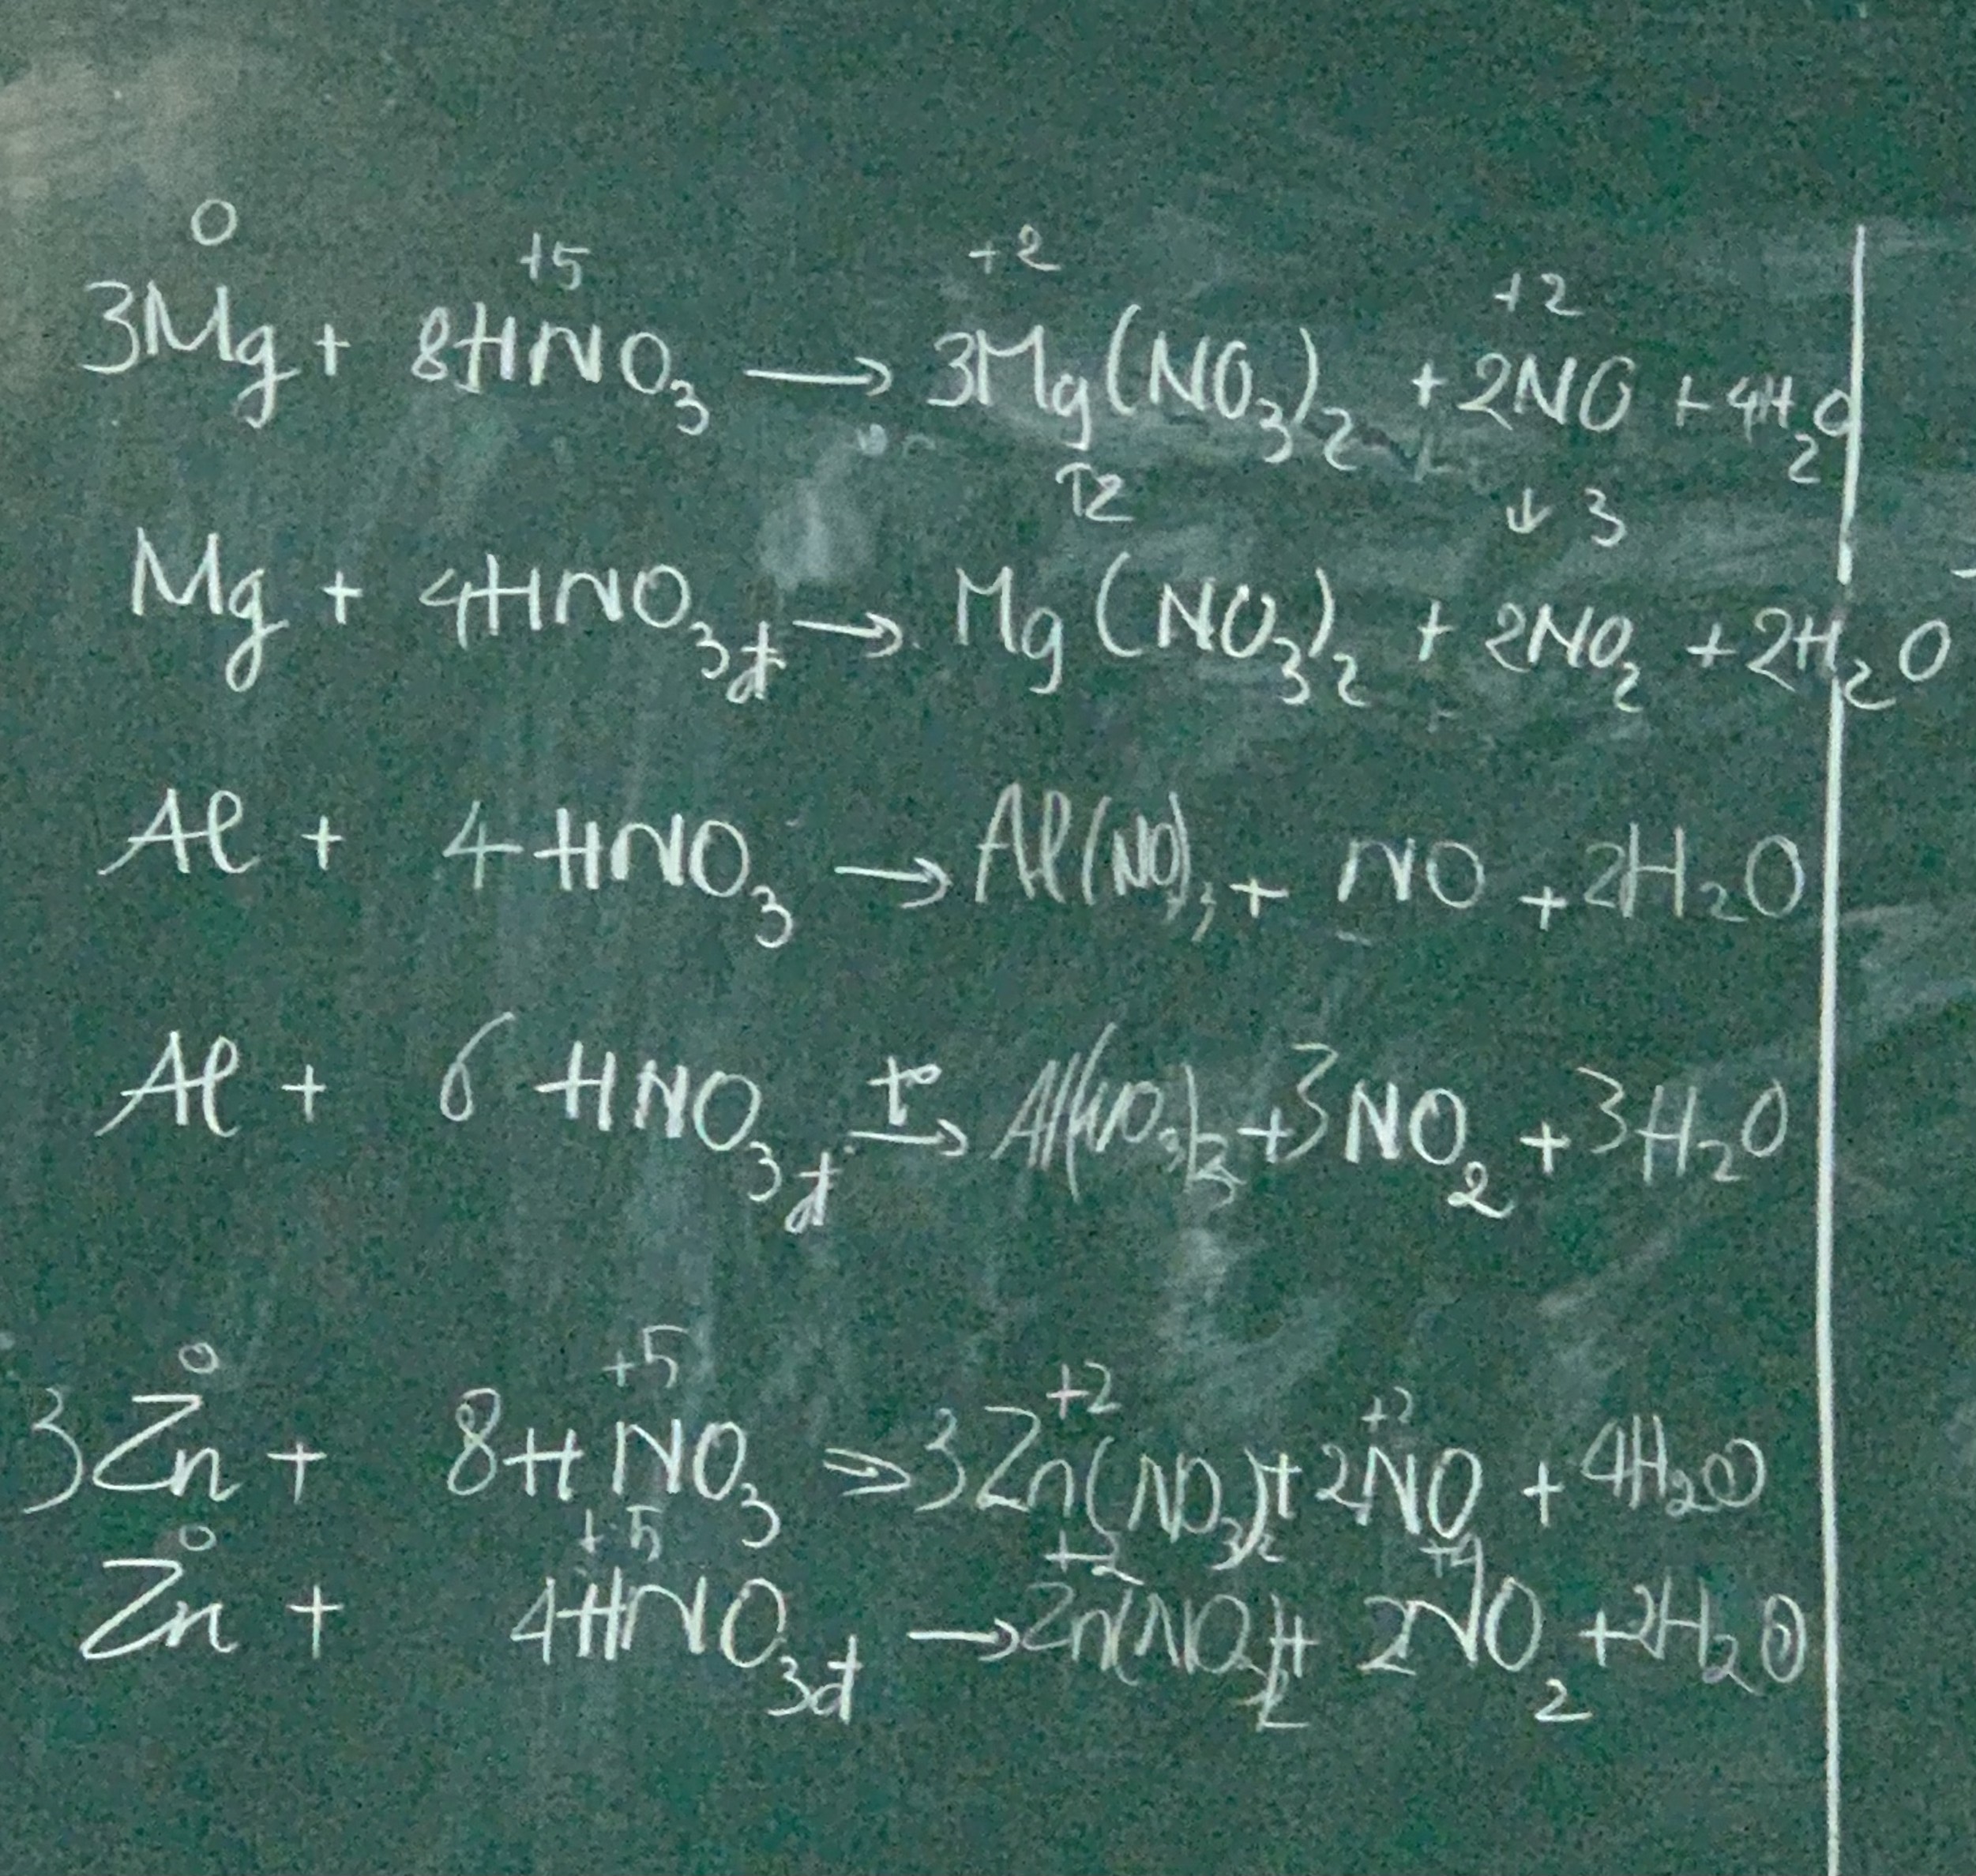 0 +5 +2 +2
3Mg + 8HNO₃ → 3Mg(NO₃)₂ + 2NO + 4H₂O
↑2 ↓3
Mg + 4HNO₃đ → Mg(NO₃)₂ + 2NO₂ + 2H₂O
Al + 4HNO₃ → Al(NO₃)₃ + NO + 2H₂O
Al + 6HNO₃đ t° → Al(NO₃)₃ + 3NO₂ + 3H₂O
0 +5 +2 +2
3Zn + 8HNO₃ → 3Zn(NO₃)₂ + 2NO + 4H₂O
0 +5 +2 +4
Zn + 4HNO₃đ → Zn(NO₃)₂ + 2NO₂ + 2H₂O